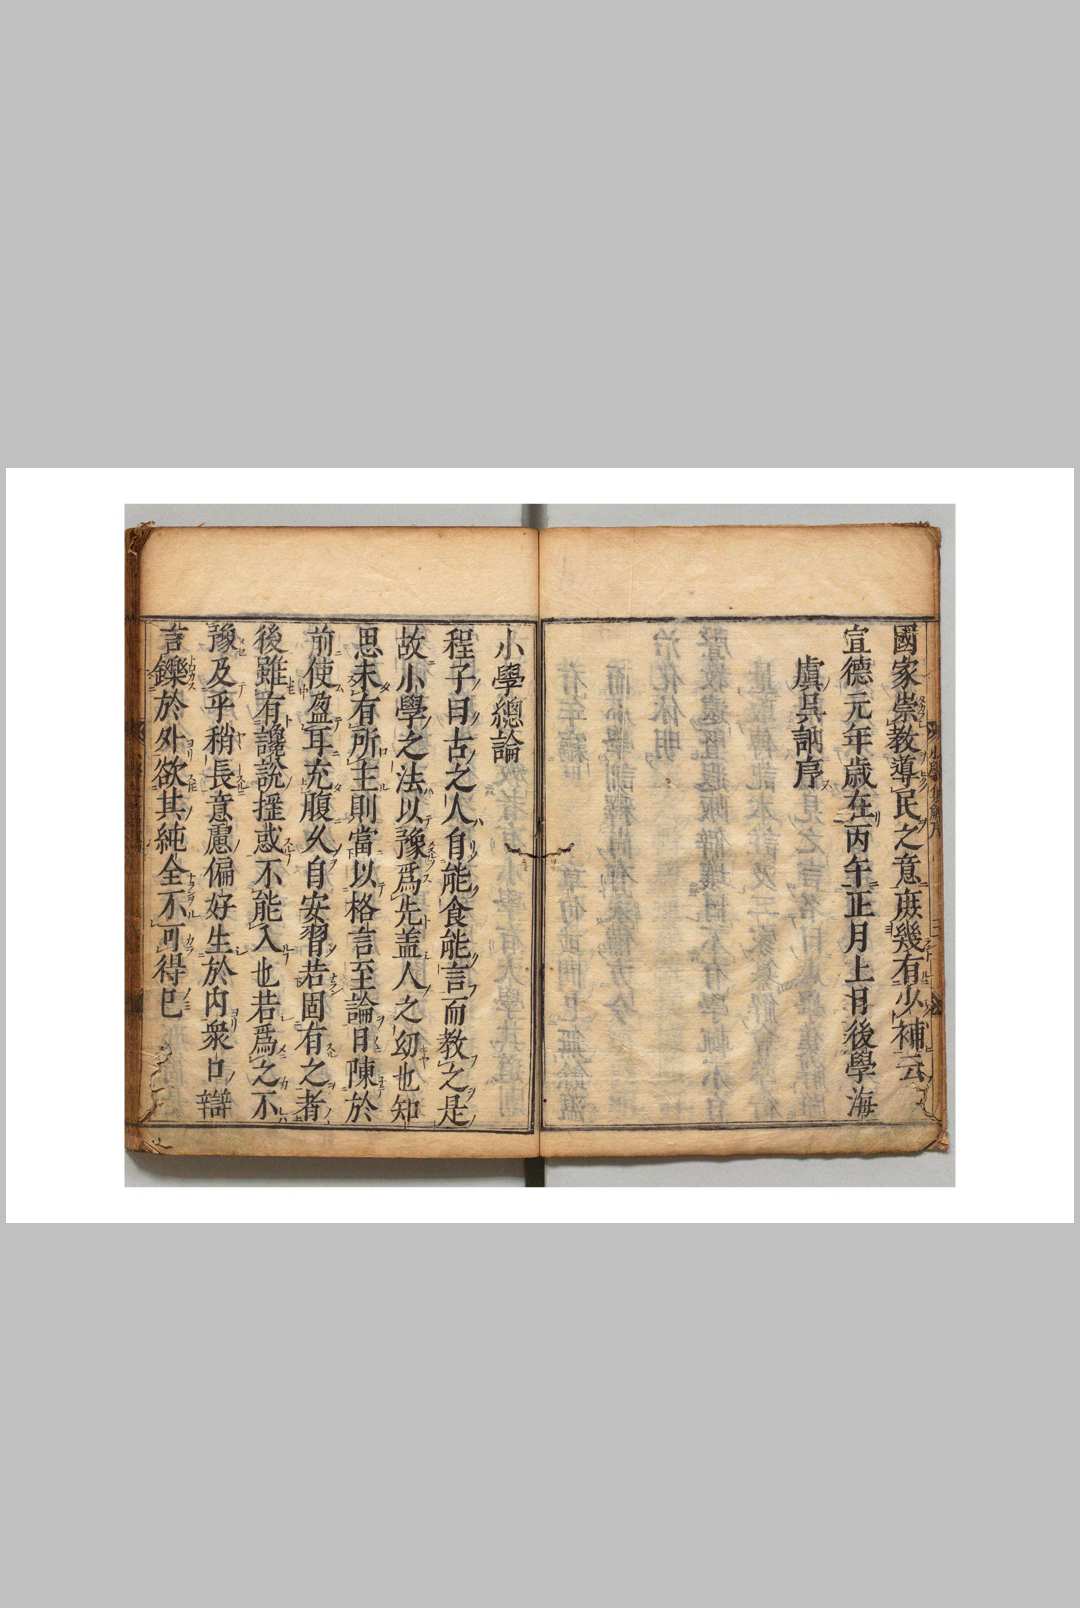 國家崇教導民之意庻幾有少補云
宣德元年歲在丙午正月上日後學海
虞吳訥序
小學總論
程子曰古之人自能食能言而教之是
故小學之法以豫爲先盖人之幼也知
思未有所主則當以格言至論日陳於
前使盈耳充腹久自安習若固有之者
後雖有讒說搖惑不能入也若爲之不
豫及乎稍長意慮偏好生於內衆口辯
言鑠於外欲其純全不可得已